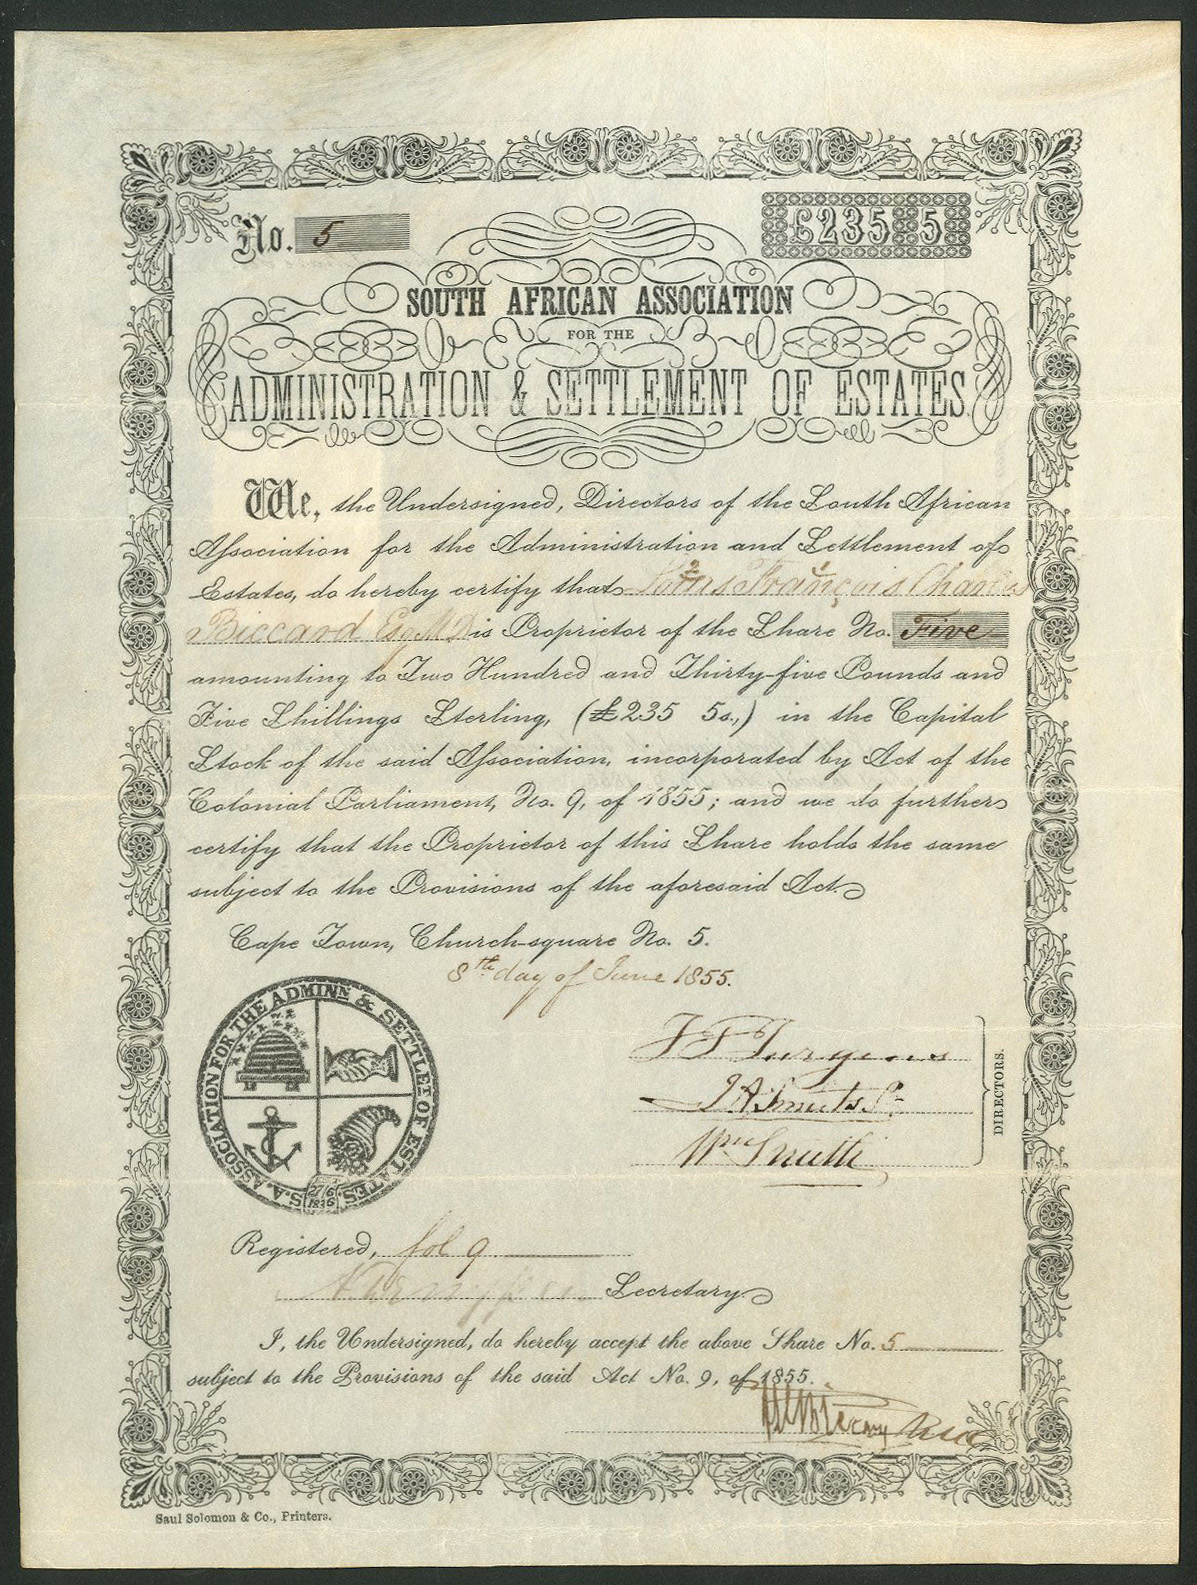 No. 5
£235 5
SOUTH AFRICAN ASSOCIATION
FOR THE
ADMINISTRATION & SETTLEMENT OF ESTATES.
We, the Undersigned, Directors of the South African
Association for the Administration and Settlement of
Estates, do hereby certify that François Charles
Biccard Esq MD is Proprietor of the Share No. Five
amounting to Two Hundred and Thirty-five Pounds and
Five Shillings Sterling, (£235 5s.,) in the Capital
Stock of the said Association, incorporated by Act of the
Colonial Parliament, No. 9, of 1855; and we do further
certify that the Proprietor of this Share holds the same
subject to the Provisions of the aforesaid Act.
Cape Town, Church-square No. 5.
8th day of June 1855.
S.A. ASSOCIATION FOR THE ADMINN & SETTLET OF ESTATES.
1836
J A Smuts
Wm Smith
DIRECTORS.
Registered, fol 9
Secretary
I, the Undersigned, do hereby accept the above Share No. 5
subject to the Provisions of the said Act No. 9, of 1855.
Saul Solomon & Co., Printers.